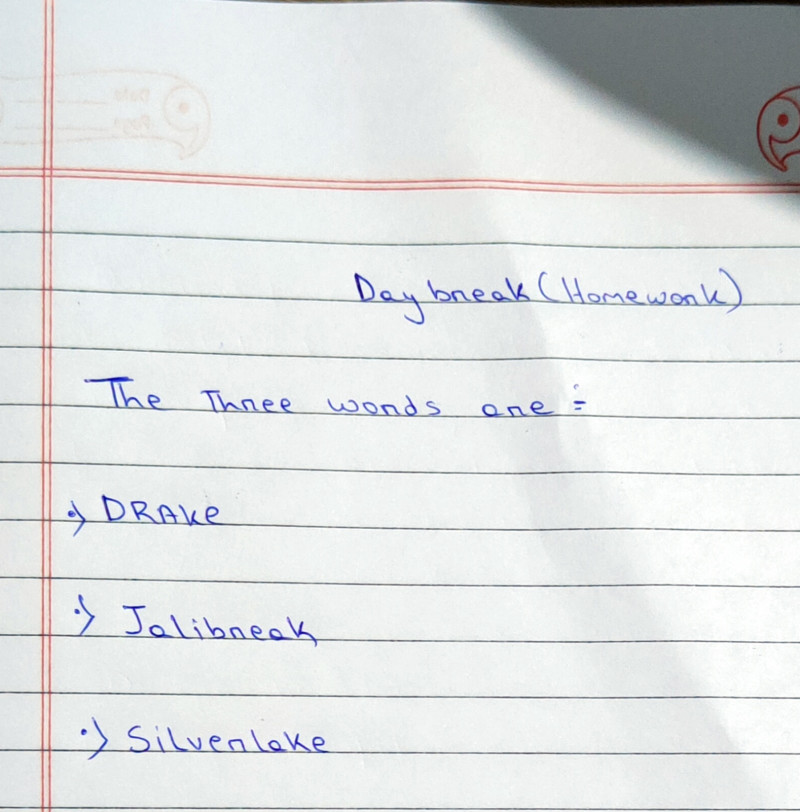 Daybreak (Homework)
The Three words are :-
•) DRAKe
•) Jalibreak
•) Silverlake